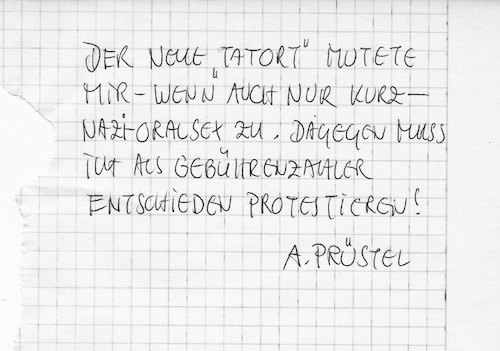 DER NEUE "TATORT" MUTETE
MIR – WENN AUCH NUR KURZ –
NAZI-ORALSEX ZU. DAGEGEN MUSS
ICH ALS GEBÜHRENZAHLER
ENTSCHIEDEN PROTESTIEREN!
A. PRÜSTEL